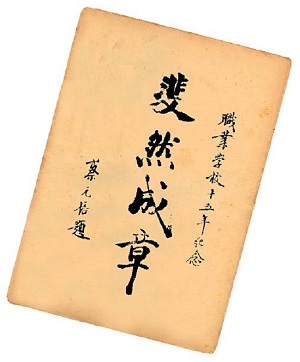 職業学校十五年紀念
斐然成章
蔡元培題